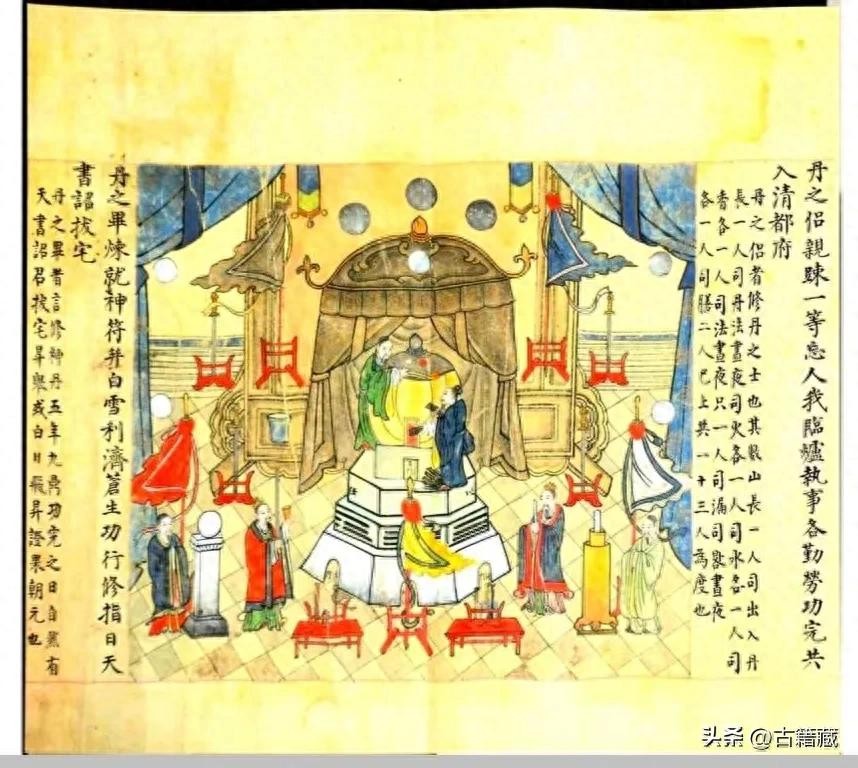 丹之侶親疎一等忘人我臨爐執事各勤勞功完共
入清都府
丹之侶者修丹之士也其數山長一人司出入丹
長一人司丹法晝夜司火各一人司水各一人司
香各一人司法晝夜只一人司漏司殽晝夜
各一人司膳二人已上共一十三人為度也
丹之畢煉就神符并白雪利濟蒼生功行修指日天
書詔拔宅
丹之畢者言修神丹五年九鼎功完之日自然有
天書詔召拔宅昇舉或白日飛昇證果朝元也
头条 @古籍藏